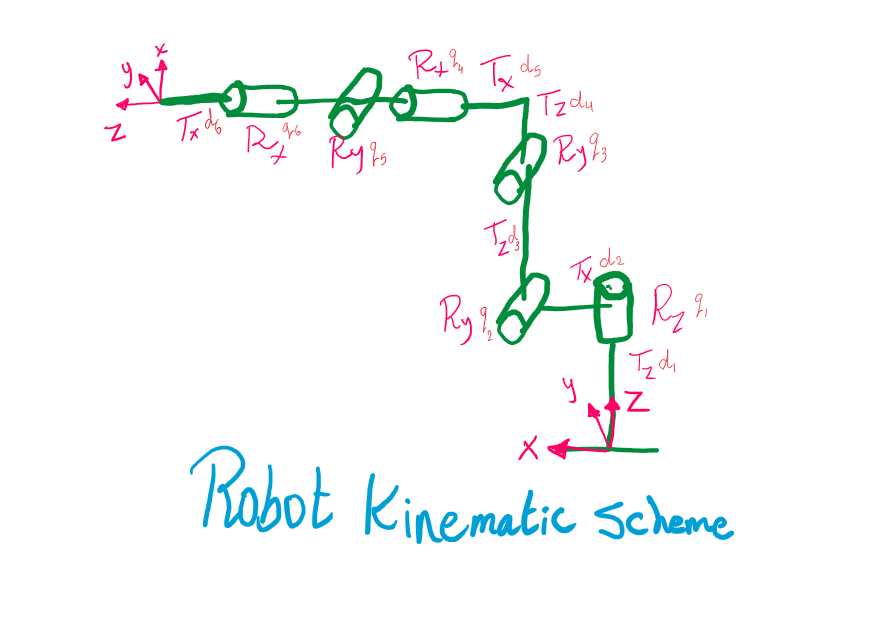 x
y
z
Tx d6
Rx q6
Ry q5
Rx q4
Tx d5
Tz d4
Ry q3
Tz d3
Ry q2
Tx d2
Rz q1
Tz d1
y
z
x
Robot Kinematic scheme